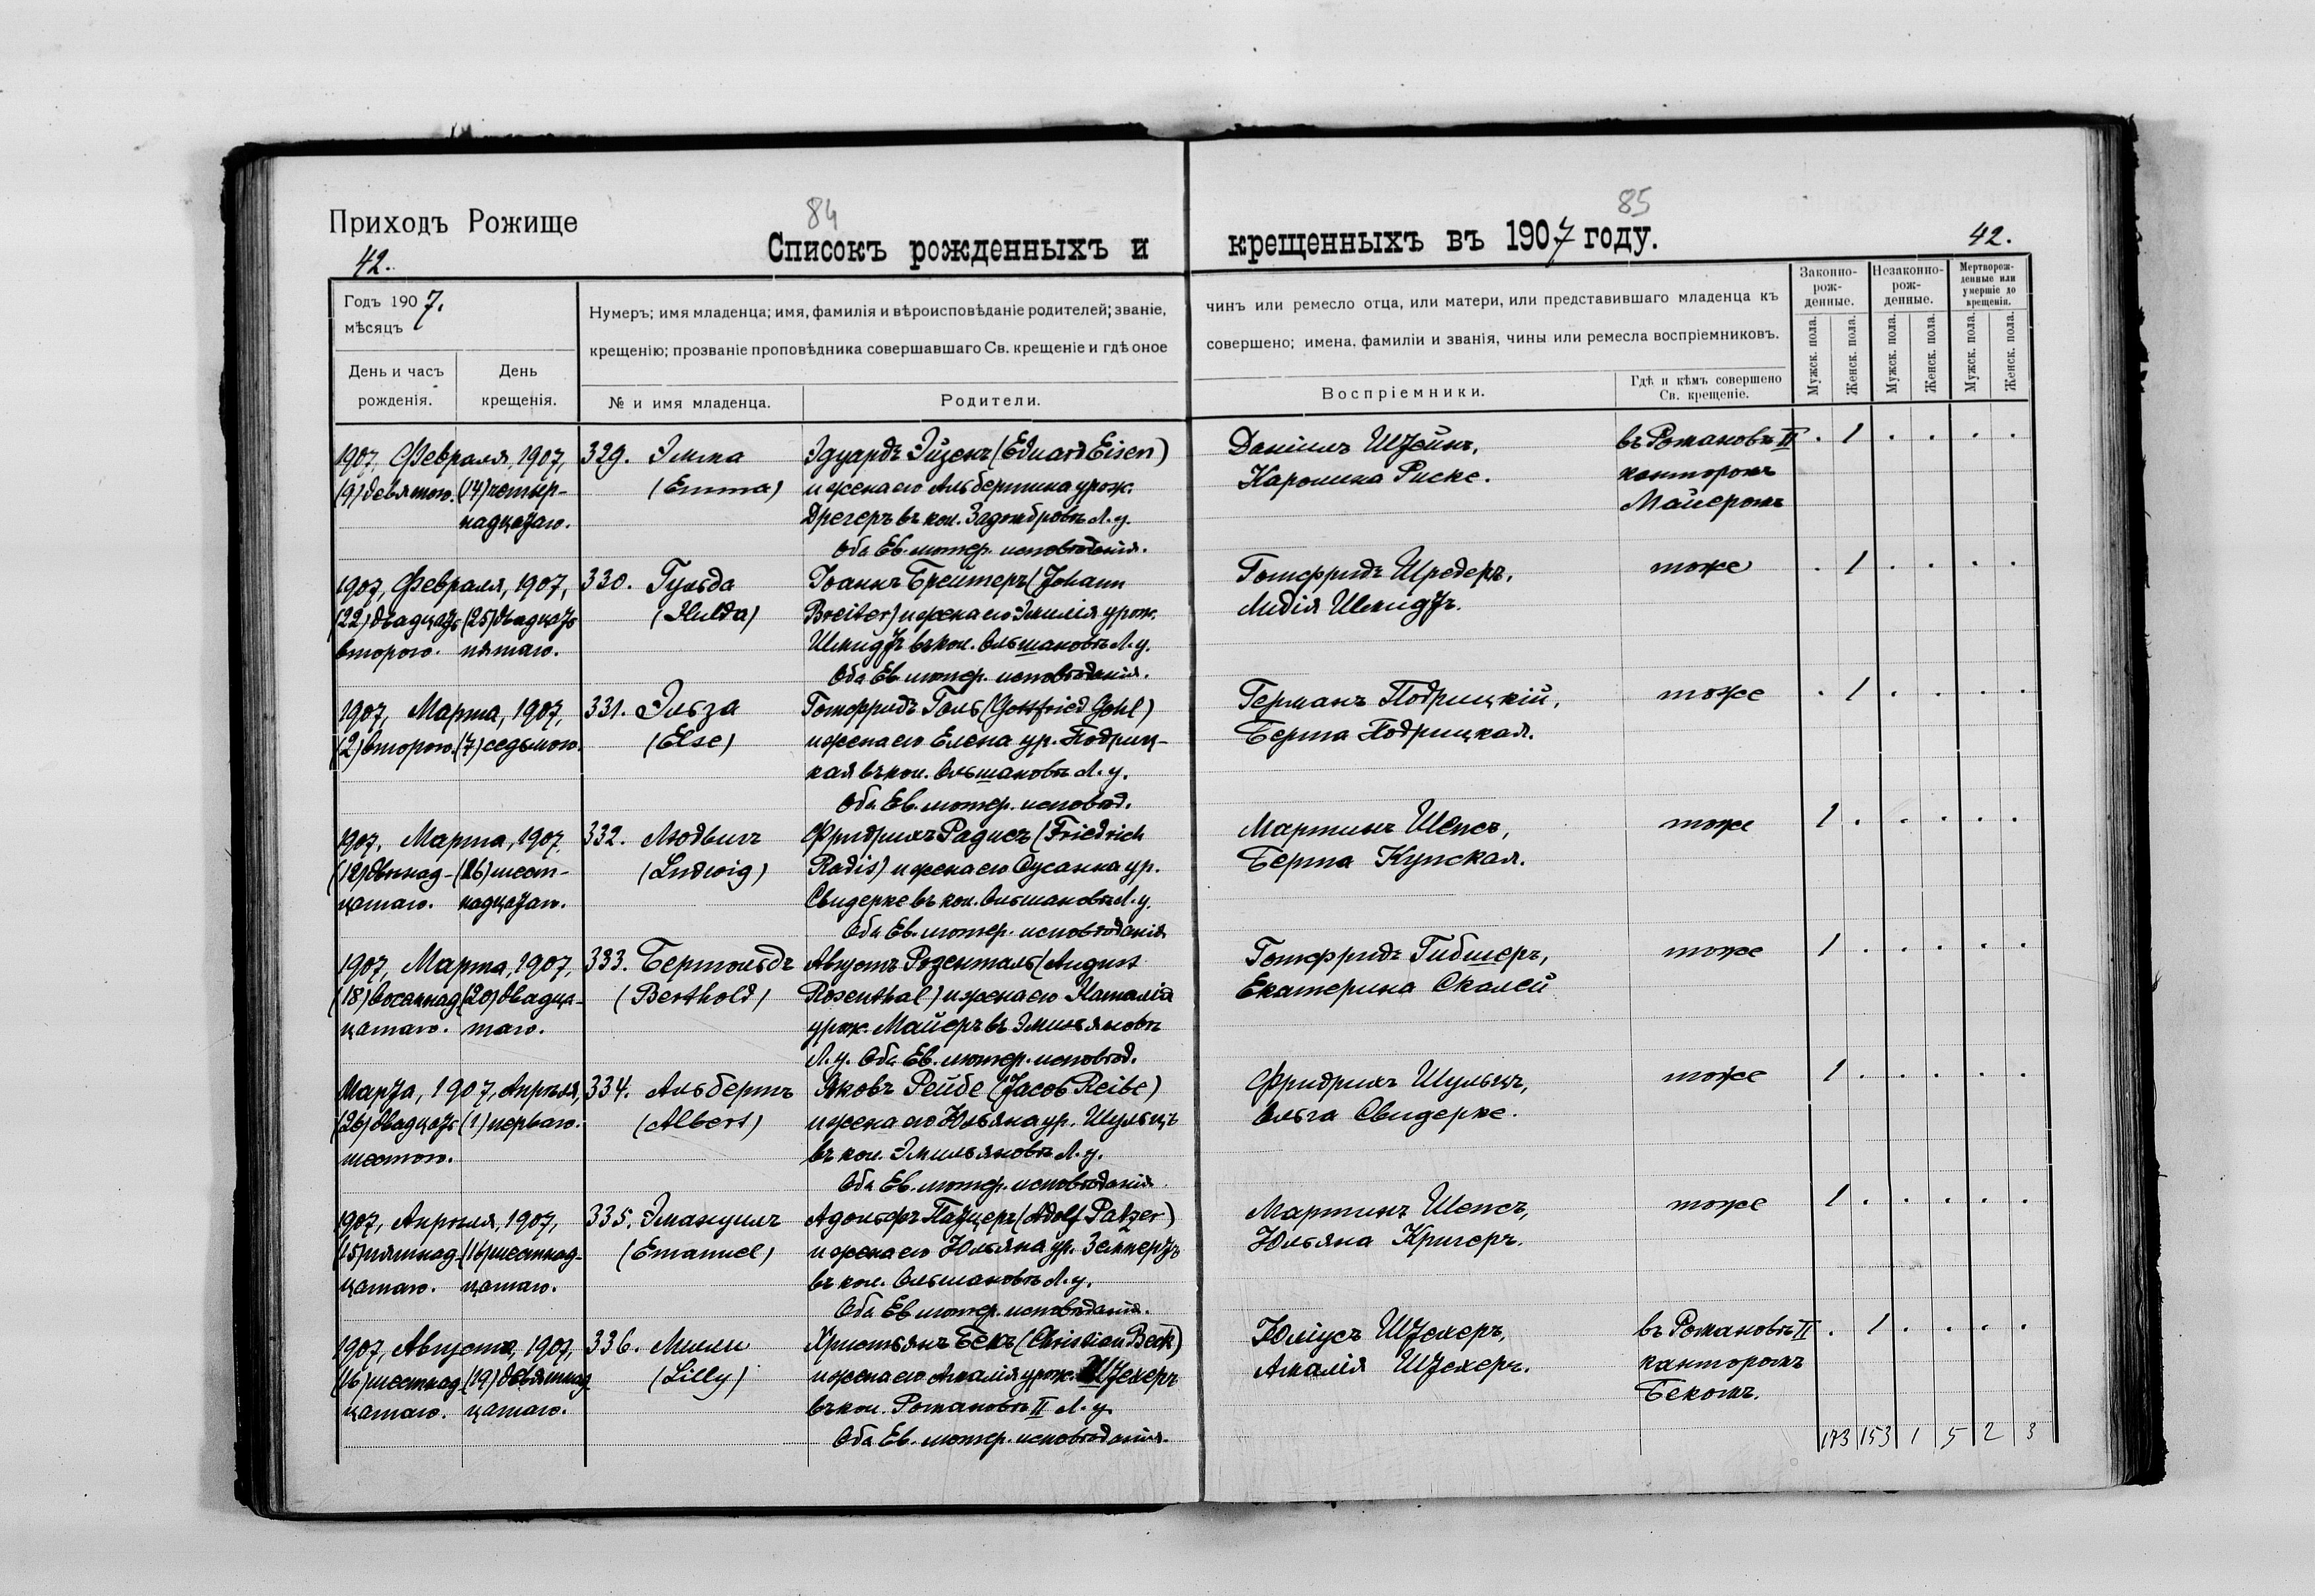 84
85
Приходъ Рожище
42.
Списокъ рожденныхъ и крещенныхъ въ 1907 году.
42.
Годъ 1907.
мѣсяцъ
День и часъ
рожденія.
День
крещенія.
Нумеръ; имя младенца; имя, фамилія и вѣроисповѣданіе родителей; званіе,
крещенію; прозваніе проповѣдника совершавшаго Св. крещеніе и гдѣ оное
№ и имя младенца.
Родители.
чинъ или ремесло отца, или матери, или представившаго младенца къ
совершено; имена, фамиліи и званія, чины или ремесла воспріемниковъ.
Воспріемники.
Гдѣ и кѣмъ совершено
Св. крещеніе.
Законно-
рож-
денные.
Незаконно-
рож-
денные.
Мертворож-
денные или
умершіе до
крещенія.
Мужск. пола.
Женск. пола.
Мужск. пола.
Женск. пола.
Мужск. пола.
Женск. пола.
1907, Февраля, 1907,
(9) девятого. (14) четыр-
надцатаго.
329. Эмма
(Emma)
Эдуардъ Эйзенъ (Eduard Eisen)
и жена его Альбертина урож.
Дрегеръ въ кол. Задомбровѣ Л. у.
Оба Ев. лютер. исповѣданія.
Даніилъ Штейнъ,
Каролина Риске.
въ Романовѣ II
канторомъ
Майеромъ
. 1 . . . .
1907, Февраля, 1907,
(22) двадцать (25) двадцать
второго. пятаго.
330. Гульда
(Hulda)
Іоаннъ Брейтеръ (Johann
Breiter) и жена его Эмилія урож.
Шмидтъ въ кол. Ольшановѣ Л. у.
Оба Ев. лютер. исповѣданія.
Готфридъ Шредеръ,
Лидія Шмидтъ.
тоже
. 1 . . . .
1907, Марта, 1907,
(2) второго. (7) седьмого.
331. Эльза
(Else)
Готфридъ Голь (Gottfried Gohl)
и жена его Елена ур. Подриц-
кая въ кол. Ольшановѣ Л. у.
Оба Ев. лютер. исповѣд.
Германъ Подрицкій,
Берта Подрицкая.
тоже
. 1 . . . .
1907, Марта, 1907
(12) двѣнад- (16) шест-
цатаго. надцатаго.
332. Людвигъ
(Ludwig)
Фридрихъ Радисъ (Friedrich
Radis) и жена его Сусанна ур.
Свидерке въ кол. Ольшановѣ Л. у.
Оба Ев. лютер. исповѣданія
Мартинъ Шепсъ,
Берта Купская.
тоже
1 . . . . .
1907, Марта, 1907,
(18) восемнад (20) двадца-
цатаго. таго.
333. Бертольдъ
(Berthold)
Августъ Розенталь (August
Rosenthal) и жена его Наталія
урож. Майеръ въ Эмильяновѣ
Л. у. Оба Ев. лютер. исповѣд.
Готфридъ Гибшеръ,
Екатерина Скалей
тоже
1 . . . . .
Марта, 1907, Апрѣля,
(26) двадцать (1) перваго.
шестого.
334. Альбертъ
(Albert)
Яковъ Рейбе (Jacob Reibe)
и жена его Юльяна ур. Шульцъ
въ кол. Эмильяновѣ Л. у.
Оба Ев. лютер. исповѣданія
Фридрихъ Шульцъ,
Ольга Свидерке.
тоже
1 . . . . .
1907, Апрѣля, 1907,
(15) пятнад- (16) шестнад-
цатаго. цатаго.
335. Эмануилъ
(Emanuel)
Адольфъ Патцеръ (Adolf Patzer)
и жена его Юльяна ур. Земпертъ
въ кол. Ольшановѣ Л. у.
Оба Ев. лютер. исповѣданія.
Мартинъ Шепсъ,
Юльяна Кригеръ.
тоже
1 . . . . .
1907, Августа, 1907,
(16) шестнад- (19) девятнад-
цатаго. цатаго.
336. Лилли
(Lilly)
Христьянъ Бекъ (Christian Beck)
и жена его Амалія урож. Штехеръ
въ кол. Романовѣ II Л. у.
Оба Ев. лютер. исповѣданія.
Юліусъ Штехеръ,
Амалія Штехеръ.
въ Романовѣ II
канторомъ
Бекомъ.
. 1 . . . .
173 153 1 5 2 3